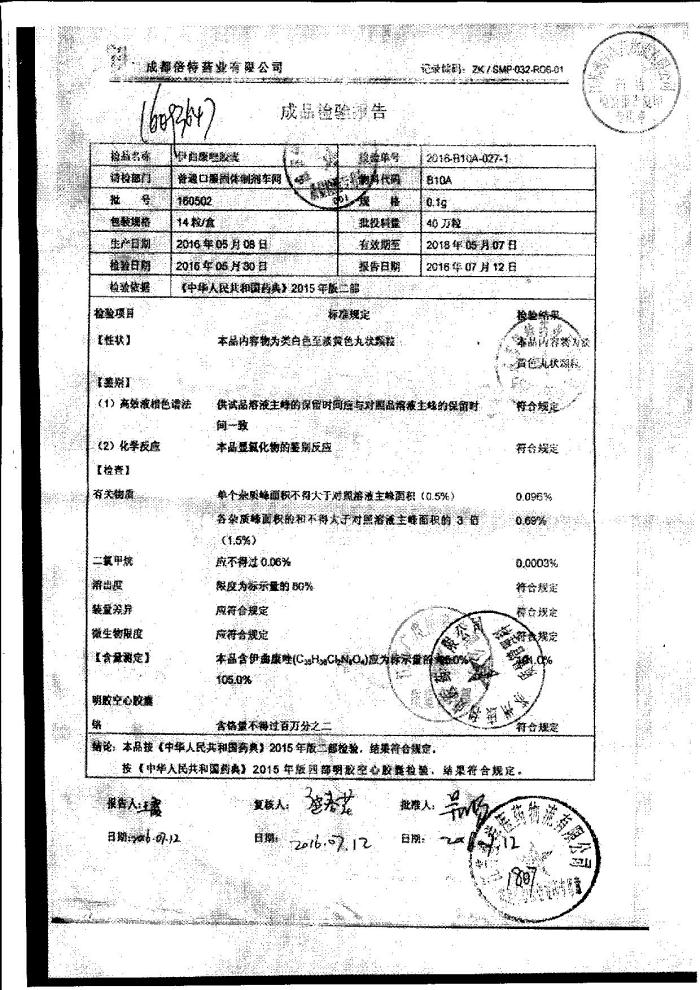 成都倍特药业有限公司 记录编码：ZK/SMP-032-R06-01
成品检验报告
检品名称 伊曲康唑胶囊 检验单号 2016-B10A-027-1
请检部门 普通口服固体制剂车间 物料代码 B10A
批 号 160502 规 格 0.1g
包装规格 14粒/盒 批投料量 40万粒
生产日期 2016年05月08日 有效期至 2018年05月07日
检验日期 2016年05月30日 报告日期 2016年07月12日
检验依据 《中华人民共和国药典》2015年版二部
检验项目 标准规定 检验结果
【性状】 本品内容物为类白色至淡黄色丸状颗粒 本品内容物为淡
黄色丸状颗粒
【鉴别】
（1）高效液相色谱法 供试品溶液主峰的保留时间应与对照品溶液主峰的保留时 符合规定
间一致
（2）化学反应 本品显氯化物的鉴别反应 符合规定
【检查】
有关物质 单个杂质峰面积不得大于对照溶液主峰面积（0.5%） 0.096%
各杂质峰面积的和不得大于对照溶液主峰面积的 3 倍 0.69%
（1.5%）
二氯甲烷 应不得过0.06% 0.0003%
溶出度 限度为标示量的80% 符合规定
装量差异 应符合规定 符合规定
微生物限度 应符合规定 符合规定
【含量测定】 本品含伊曲康唑(C₃₅H₃₈Cl₂N₈O₄)应为标示量的
105.0%
明胶空心胶囊
铬 含铬量不得过百万分之二 符合规定
结论：本品按《中华人民共和国药典》2015年版二部检验，结果符合规定。
按《中华人民共和国药典》2015年版四部明胶空心胶囊检验，结果符合规定。
报告人： 复核人： 批准人：
日期：2016.07.12 日期： 2016.07.12 日期：
1807